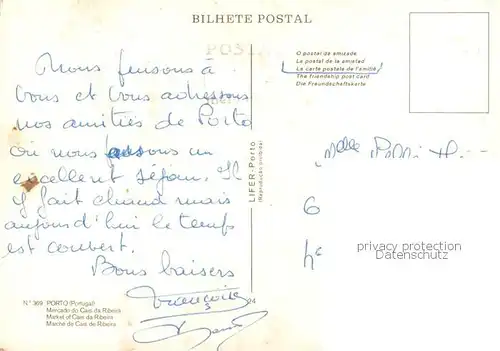 BILHETE POSTAL
O postal de amizade
La postal de la amistad
La carte postale de l'amitié
The friendship post card
Die Freundschaftskarte
Nous pensons à
vous et vous adressons
nos amitiés de Porto
où nous faisons un
excellent séjour. Il
y fait chaud mais
aujourd'hui le temps
est couvert.
Bons baisers
Françoise
LIFER-Porto
(Reprodução proibida)
Melle
6
privacy protection
Datenschutz
N.º 369 PORTO (Portugal)
Mercado do Cais da Ribeira
Market of Cais da Ribeira
Marché de Cais de Ribeira